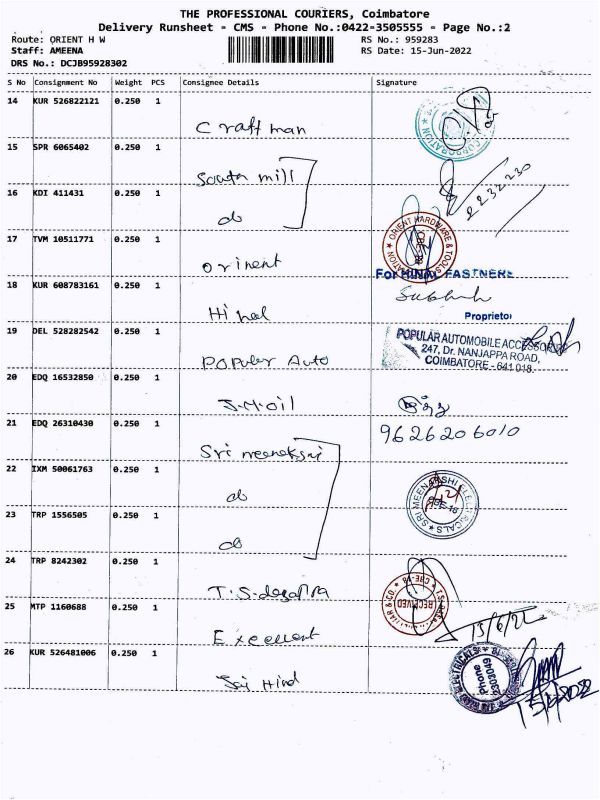 THE PROFESSIONAL COURIERS, Coimbatore
Delivery Runsheet - CMS - Phone No.:0422-3505555 - Page No.:2
Route: ORIENT H W
RS No.: 959283
Staff: AMEENA
RS Date: 15-Jun-2022
DRS No.: DCJB95928302
S No Consignment No Weight PCS Consignee Details Signature
14 KUR 526822121 0.250 1
Craftman
CORPORATION
15 SPR 6065402 0.250 1
South mill
2232230
16 KDI 411431 0.250 1
do
ORIENT HARDWARE & TOOLS
17 TVM 10511771 0.250 1
Orinent
For HINAL FASTNERS
18 KUR 608783161 0.250 1
Hinal
Proprietor
19 DEL 528282542 0.250 1
Popular Auto
POPULAR AUTOMOBILE ACCESSORIES
247, Dr. NANJAPPA ROAD,
COIMBATORE - 641 018.
20 EDQ 16532850 0.250 1
J.M.oil
21 EDQ 26310430 0.250 1
Sri meenakshi
9626206010
22 IXM 50061763 0.250 1
do
SRI MEENAKSHI ELECTRICALS
CBE-18
23 TRP 1556505 0.250 1
do
24 TRP 8242302 0.250 1
T.S.
CBE-18
RECEIVED
25 MTP 1160688 0.250 1
Excellent
15/6/22
26 KUR 526481006 0.250 1
Jai Hind
ELECTRICALS
Phone
2303049
15/6/2022